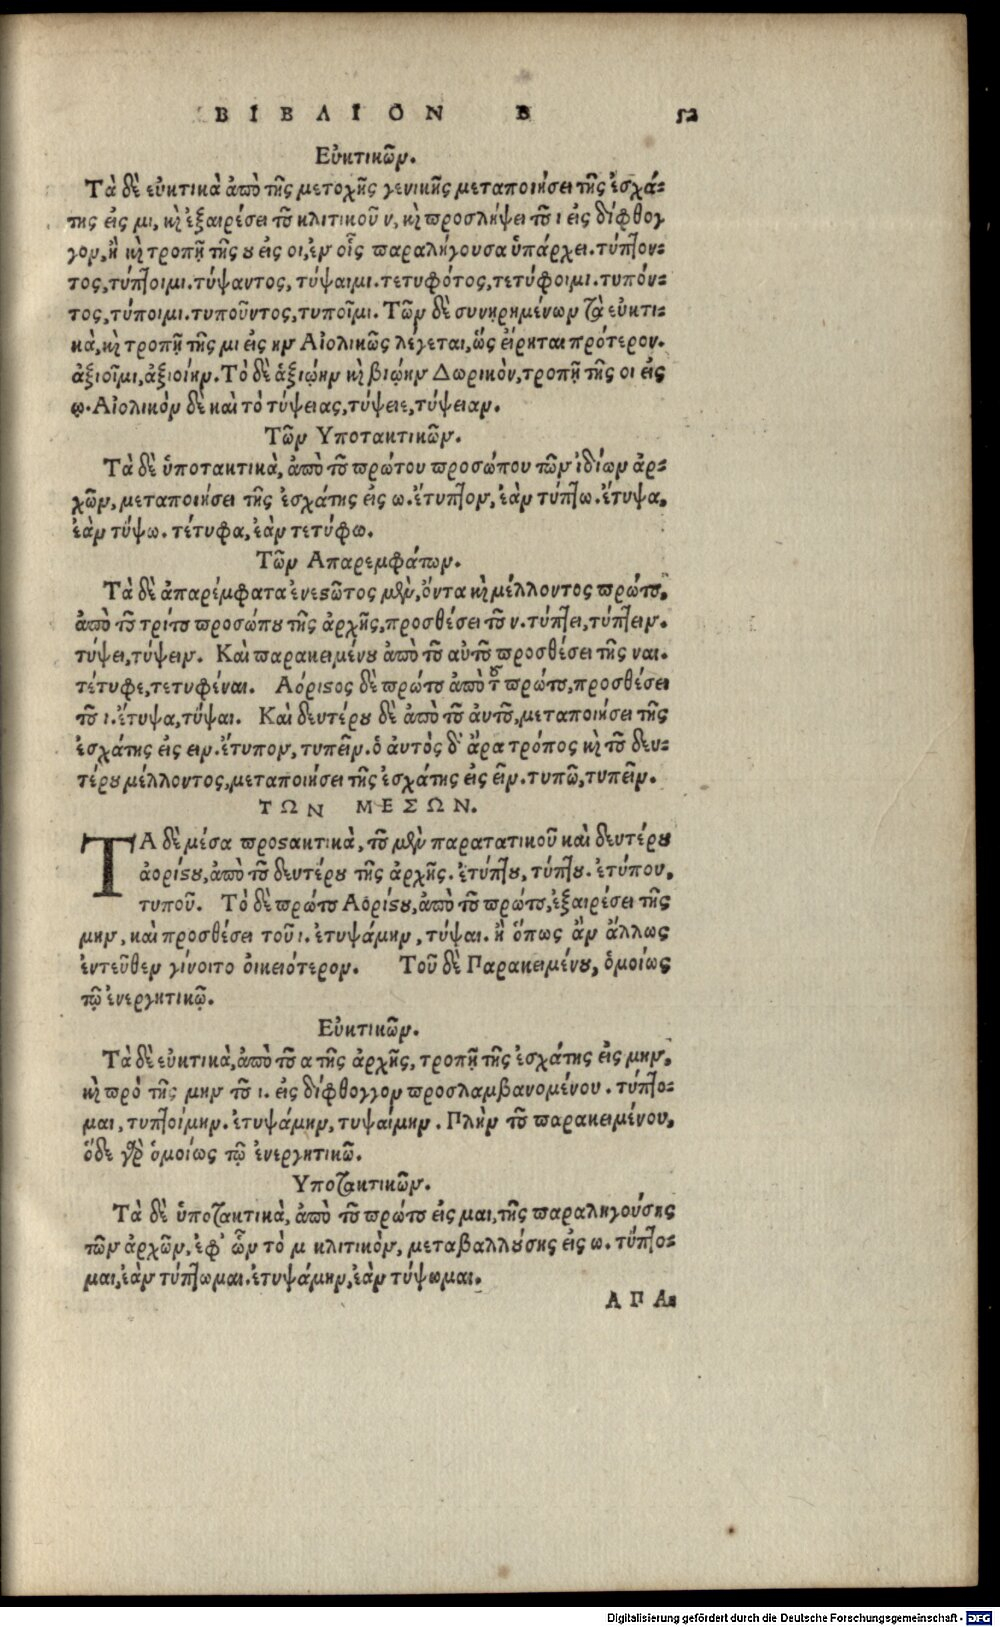 ΒΙΒΛΙΟΝ Β 52
Εὐκτικῶν.
Τὰ δὲ εὐκτικὰ ἀπὸ τῆς μετοχῆς γενικῆς μεταποιήσει τῆς ἐσχά-
της εἰς μι, κỳ ἐξαιρέσει τοῦ κλιτικοῦ ν, κỳ προσλήψει τοῦ ι εἰς δίφθογ
γον, ἢ κỳ τροπῇ τῆς ȣ εἰς οι, ἐν οἷς παραλήγουσα ὑπάρχει. τύπτον-
τος, τύπτοιμι. τύψαντος, τύψαιμι. τετυφότος, τετύφοιμι. τυπόν-
τος, τύποιμι. τυποῦντος, τυποῖμι. Τῶν δὲ συνῃρημένων τὰ εὐκτι-
κὰ, κỳ τροπῇ τῆς μι εἰς ην Αἰολικῶς λέγεται, ὥς εἴρηται πρότερον.
ἀξιοῖμι, ἀξιοίην. Τὸ δὲ ἀξιῴην κỳ βιῴην Δωρικὸν, τροπῇ τῆς οι εἰς
ῳ. Αἰολικὸν δὲ καὶ τὸ τύψειας, τύψειε, τύψειαν.
Τῶν Υποτακτικῶν.
Τὰ δὲ ὑποτακτικὰ, ἀπὸ τοῦ πρώτου προσώπου τῶν ἰδίων ἀρ-
χῶν, μεταποιήσει τῆς ἐσχάτης εἰς ω. ἔτυπτον, ἐὰν τύπτω. ἔτυψα,
ἐὰν τύψω. τέτυφα, ἐὰν τετύφω.
Τῶν Απαρεμφάτων.
Τὰ δὲ ἀπαρέμφατα ἐνεϛῶτος μὲν, ὄντα κỳ μέλλοντος πρώτου,
ἀπὸ τοῦ τρίτου προσώπȣ τῆς ἀρχῆς, προσθέσει τοῦ ν. τύπτει, τύπτειν.
τύψει, τύψειν. Καὶ παρακειμένȣ ἀπὸ τοῦ αὐτοῦ προσθέσει τῆς ναι.
τέτυφε, τετυφέναι. Αόριϛος δὲ πρώτου ἀπὸ τοῦ πρώτου, προσθέσει
τοῦ ι. ἔτυψα, τύψαι. Καὶ δευτέρȣ δὲ ἀπὸ τοῦ ἀυτοῦ, μεταποιήσει τῆς
ἐσχάτης εἰς ειν. ἔτυπον, τυπεῖν. ὁ ἀυτὸς δ' ἄρα τρόπος κỳ τοῦ δευ-
τέρȣ μέλλοντος, μεταποιήσει τῆς ἐσχάτης εἰς εῖν. τυπῶ, τυπεῖν.
ΤΩΝ ΜΕΣΩΝ.
ΤΑ δὲ μέσα προϛακτικὰ, τοῦ μὲν παρατατικοῦ καὶ δευτέρȣ
ἀορίϛȣ, ἀπὸ τοῦ δευτέρȣ τῆς ἀρχῆς. ἐτύπτȣ, τύπτȣ. ἐτύπου,
τυποῦ. Τὸ δὲ πρώτου Αὀρίϛȣ, ἀπὸ τοῦ πρώτου, ἐξαιρέσει τῆς
μην, καὶ προσθέσει τοῦ ι. ἐτυψάμην, τύψαι. ἢ ὅπως ἂν ἄλλως
ἐντεῦθεν γίνοιτο ὀικειότερον. Τοῦ δὲ Παρακειμένȣ, ὁμοίως
τῷ ἐνεργητικῷ.
Εὐκτικῶν.
Τὰ δὲ εὐκτικὰ, ἀπὸ τοῦ α τῆς ἀρχῆς, τροπῇ τῆς ἐσχάτης εἰς μην,
κỳ πρὸ τῆς μην τοῦ ι. εἰς δίφθογγον προσλαμβανομένου. τύπτο-
μαι, τυπτοίμην. ἐτυψάμην, τυψαίμην. Πλὴν τοῦ παρακειμένου,
ὅδε γὰρ ὁμοίως τῷ ἐνεργητικῶ.
Υποτακτικῶν.
Τὰ δὲ ὑποτακτικὰ, ἀπὸ τοῦ πρώτου εἰς μαι, τῆς παραληγούσης
τῶν ἀρχῶν, ἐφ' ὧν τὸ μ κλιτικὸν, μεταβαλλȣσης εἰς ω. τύπτο-
μαι, ἐὰν τύπτωμαι. ἐτυψάμην, ἐὰν τύψωμαι.
ΑΠΑ-
Digitalisierung gefördert durch die Deutsche Forschungsgemeinschaft - DFG